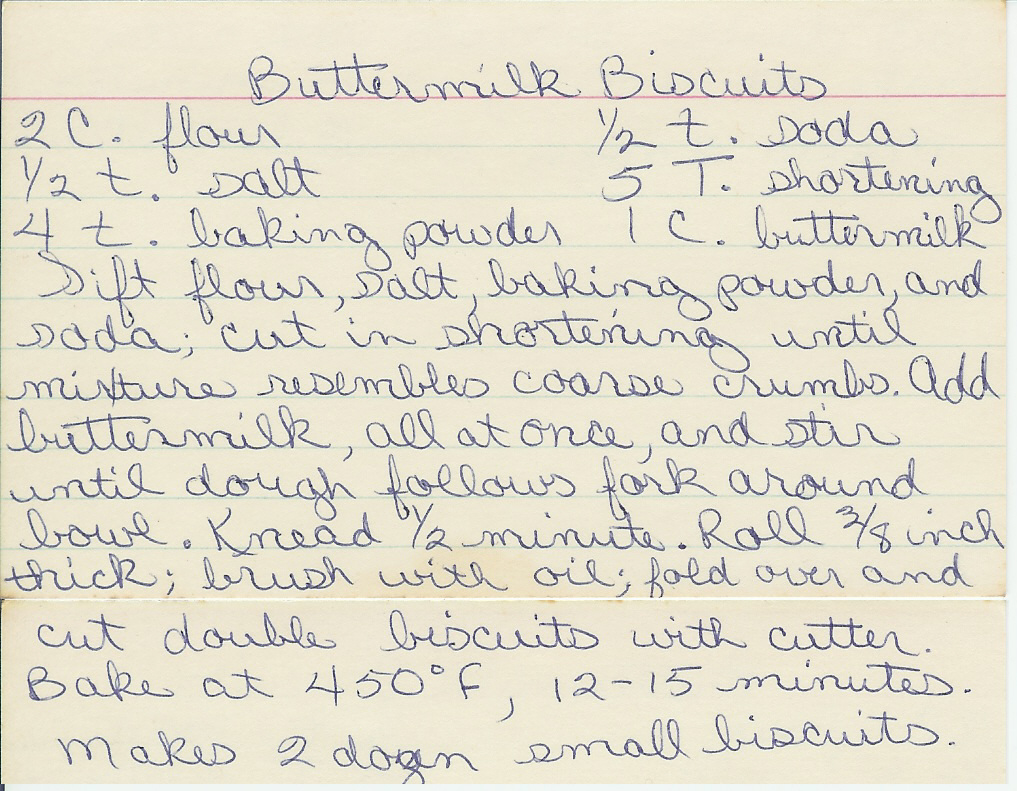 Buttermilk Biscuits
2 C. flour 1/2 t. soda
1/2 t. salt 5 T. shortening
4 t. baking powder 1 C. buttermilk
Sift flour, salt, baking powder, and
soda; cut in shortening until
mixture resembles coarse crumbs. Add
buttermilk, all at once, and stir
until dough follows fork around
bowl. Knead 1/2 minute. Roll 3/8 inch
thick; brush with oil; fold over and
cut double biscuits with cutter.
Bake at 450°F, 12-15 minutes.
Makes 2 dozen small biscuits.